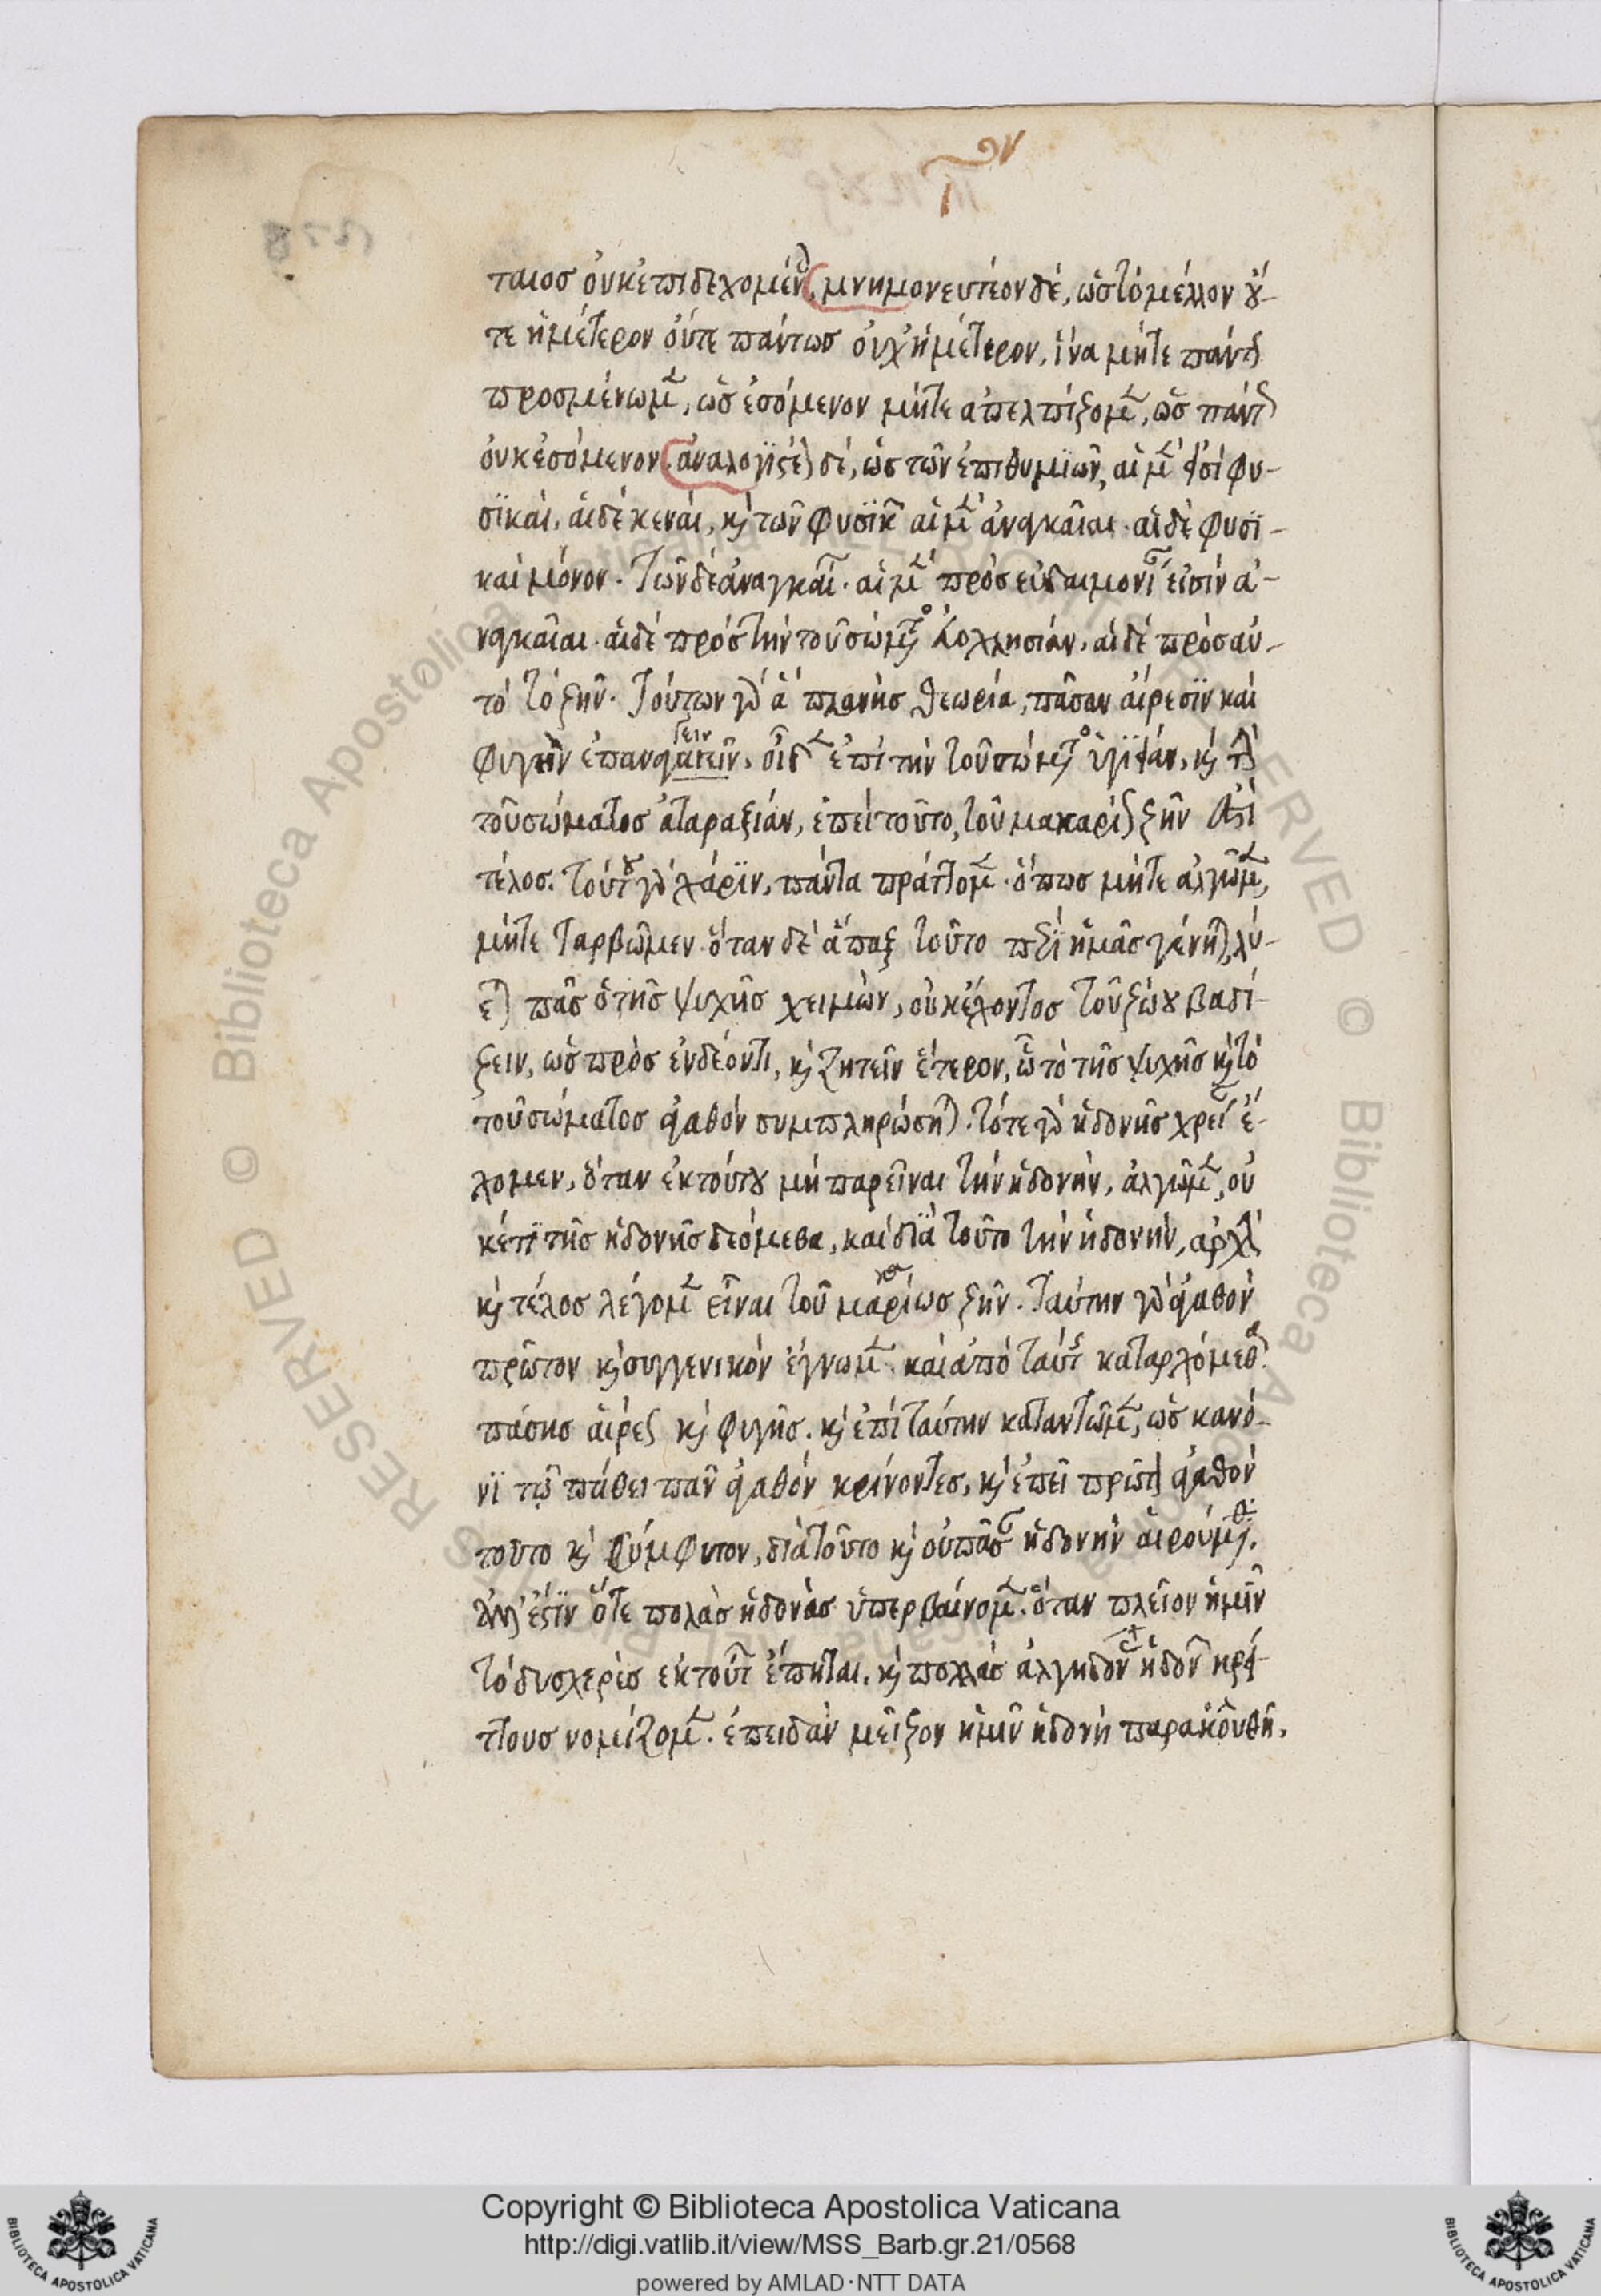 ταιος οὐκ ἐπιδεχομέν. μνημονευτέον δέ, ὡς τὸ μέλλον ού-
τε ἡμέτερον οὔτε πάντως οὐχ ἡμέτερον, ἵνα μήτε πάντ
προσμένωμ, ὡς ἐσόμενον μήτε ἀπελπίζομ, ὡς πάντ
οὐκ ἐσόμενον. ἀναλογιστέ δέ, ὡς τῶν ἐπιθυμιῶν, αἱ μ εἰσὶ φυ-
σϊκαί, αἱ δὲ κεναί, κ τῶν φυσϊκ αἱ μ ἀναγκαῖαι. αἱ δὲ φυσϊ-
καὶ μόνον. Τῶν δὲ ἀναγκαι. αἱ μ πρὸς εὐδαιμονι εἰσὶν ἀ-
ναγκαῖαι. αἱ δὲ πρὸς τὴν τοῦ σώμτο ἀοχλησίαν, αἱ δὲ πρὸς αὐ-
τὸ τὸ ζῆν. Τούτων γὰρ ἀπλανὴς θεωρία, πᾶσαν αἵρεσϊν καὶ
φυγὴν ἐπαναγαγεῖν, οἶδ ἐπὶ τὴν τοῦ σώμτο ὑγίειαν, κ τὴ
τοῦ σώματος ἀταραξίαν, ἐπεὶ τοῦτο, τοῦ μακαρί ζῆν ἐστὶ
τέλος. τούτου γὰρ χάρϊν, πάντα πράττομ. ὅπως μήτε ἀλγῶμ,
μήτε ταρβῶμεν. ὅταν δὲ ἅπαξ τοῦτο περὶ ἡμᾶς γένητ, λύ-
ετ πᾶς ὁ τῆς ψυχῆς χειμών, οὐκ ἔχοντος τοῦ ζώου βαδί-
ζειν, ὡς πρὸς ἐνδέοντι, κ ζητεῖν ἕτερον, ᾧ τὸ τῆς ψυχῆς κ τὸ
τοῦ σώματος ἀγαθὸν συμπληρώσητ. τότε γὰρ ἡδονῆς χρεί ἔ-
χομεν, ὅταν ἐκ τούτου μὴ παρεῖναι τὴν ἡδονὴν, ἀλγῶμ, οὐ
κέτϊ τῆς ἡδονῆς δεόμεθα, καὶ δϊὰ τοῦτο τὴν ἡδονὴν, ἀρχὴ
κ τέλος λέγομ εἶναι τοῦ μακαρίως ζῆν. Ταύτην γὰρ ἀγαθὸν
πρῶτον κ συγγενικὸν ἔγνωμ. καὶ ἀπὸ ταύτ καταρχόμεθα
πάσης αἱρέσ κ φυγῆς. κ ἐπὶ ταύτην καταντῶμ, ὡς κανό-
νϊ τῷ πάθει πᾶν ἀγαθὸν κρίνοντες, κ ἐπεὶ πρῶτ ἀγαθὸν
τοῦτο κ σύμφυτον, διὰ τοῦτο κ οὐ πᾶσ ἡδονὴν αἱρούμθ.
ἀλλ ἔστϊν ὅτε πολὰς ἡδονὰς ὑπερβαίνομ. ὅταν πλεῖον ἡμῖν
τὸ δυσχερὲς ἐκ τούτ ἕπηται, κ πολλὰς ἀλγηδόν ἡδον κρεί
ττους νομίζομ. ἐπειδὰν μεῖζον ἡμῖν ἡδονὴ παρακολουθῆ,
Copyright © Biblioteca Apostolica Vaticana
http://digi.vatlib.it/view/MSS_Barb.gr.21/0568
powered by AMLAD·NTT DATA